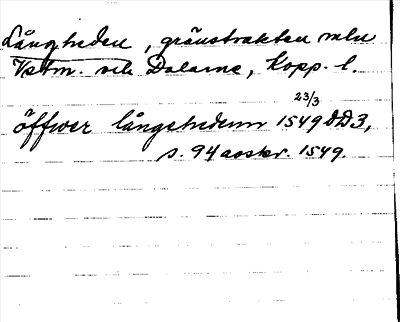 Långheden, gränstrakten mln
Vstm. och Dalarne, Kopp. l.
öffwer långehedenn 1549 23/3 DD3,
s. 94 avskr. 1549.